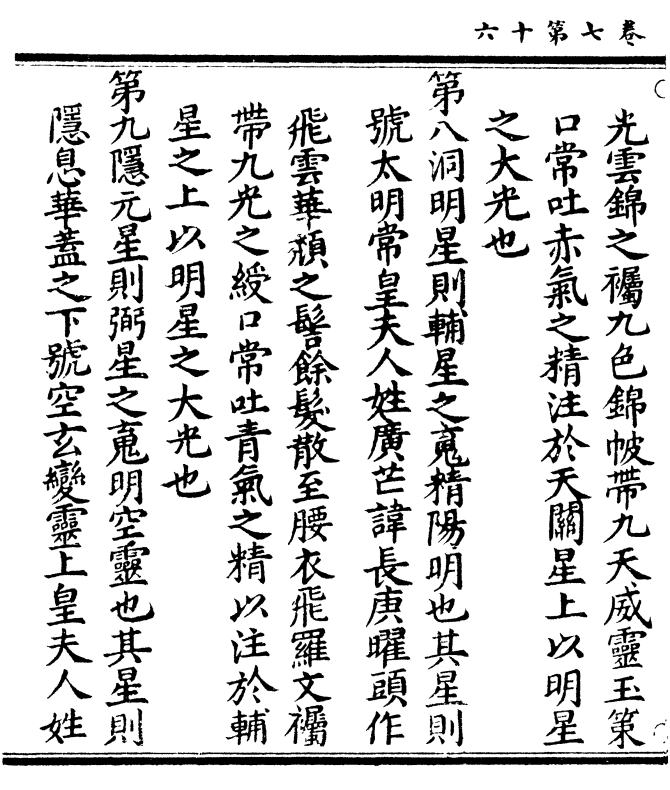 卷七第十六
光雲錦之襡九色錦帔帶九天威靈玉策
口常吐赤氣之精注於天關星上以明星
之大光也
第八洞明星則輔星之䰟精陽明也其星則
號太明常皇夫人姓廣芒諱長庚曜頭作
飛雲華頹之髻餘髮散至腰衣飛羅文襡
帶九光之綬口常吐青氣之精以注於輔
星之上以明星之大光也
第九隱元星則弼星之䰟明空靈也其星則
隱息華蓋之下號空玄變靈上皇夫人姓